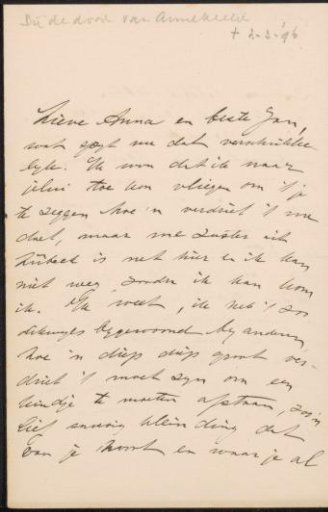 Bij de dood van Annekleetje
+ 2-2-'96
Lieve Anna en beste Jan,
wat spyt me dat verschrikke
lyk. Ik wou dat ik naar
jelui toe kon vliegen om 't je
te zeggen hoe'n verdriet 't me
doet, maar me zuster uit
Lübeck is net hier en ik kan
niet weg, zonder ik kan kom
ik. Ik weet, ik heb 't zoo
dikwyls bygewoond by anderen
hoe 'n diep diep groot ver-
driet 't moet zyn om een
kindje te moeten afstaan, zoo'n
lief snoezig klein ding dat
van je hoort en waar je al